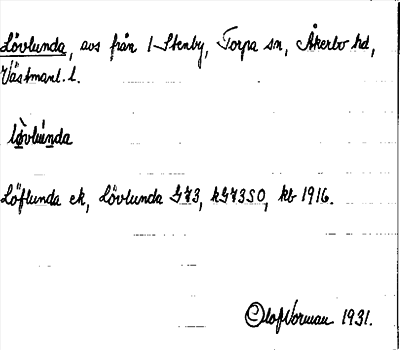 Lövlunda, avs från 1 Stenby, Torpa sn, Åkerbo hd,
Västmanl. l.
lò̤vlúnda
Löflunda ek, Lövlunda G73, kG73SO, kb 1916.
Olof Norman 1931.